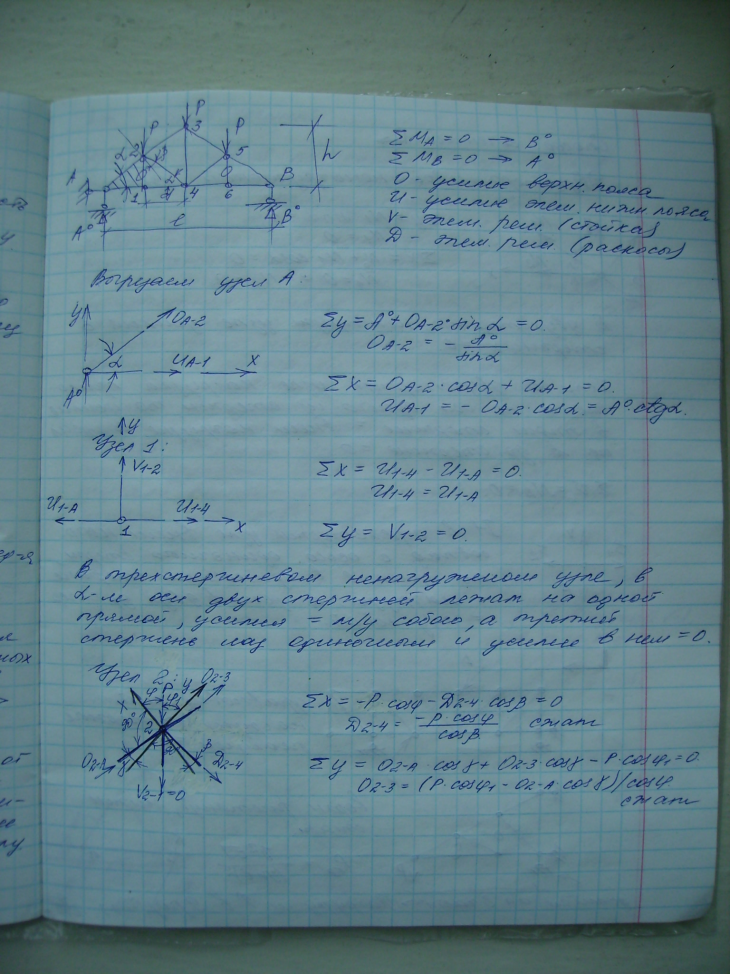 P
P
P
3
2
5
h
A
B
1
4
6
A°
l
B°
ΣMA = 0 → B°
ΣMB = 0 → A°
O - усилие верхн. пояса
U - усилие элем. нижн пояса
V - элем. реш. (стойка)
D - элем. реш (раскосы)
Вырезаем узел A
y
OA-2
α
UA-1
x
A°
Σy = A° + OA-2 · sin α = 0.
OA-2 = - A°/sin α
Σx = OA-2 · cos α + UA-1 = 0.
UA-1 = - OA-2 · cos α = A° · ctg α.
y
Узел 1:
V1-2
U1-A
U1-4
1
x
Σx = U1-4 - U1-A = 0.
U1-4 = U1-A
Σy = V1-2 = 0.
В трехстержневом ненагруженом узле, в
2-м оси двух стержней лежат на одной
прямой, усилия = м/у собою, а третий
стержень одиночным и усилие в нем = 0.
Узел 2:
y
O2-3
x
φ
P
φ1
90°
2
β
O2-A
γ
D2-4
V2-1 = 0
Σx = -P · cos φ - D2-4 · cos β = 0
D2-4 = -P · cos φ/cos β сжат
Σy = O2-A · cos γ + O2-3 · cos γ - P · cos φ1 = 0
O2-3 = (P · cos φ1 - O2-A · cos γ)/cos φ
сжат